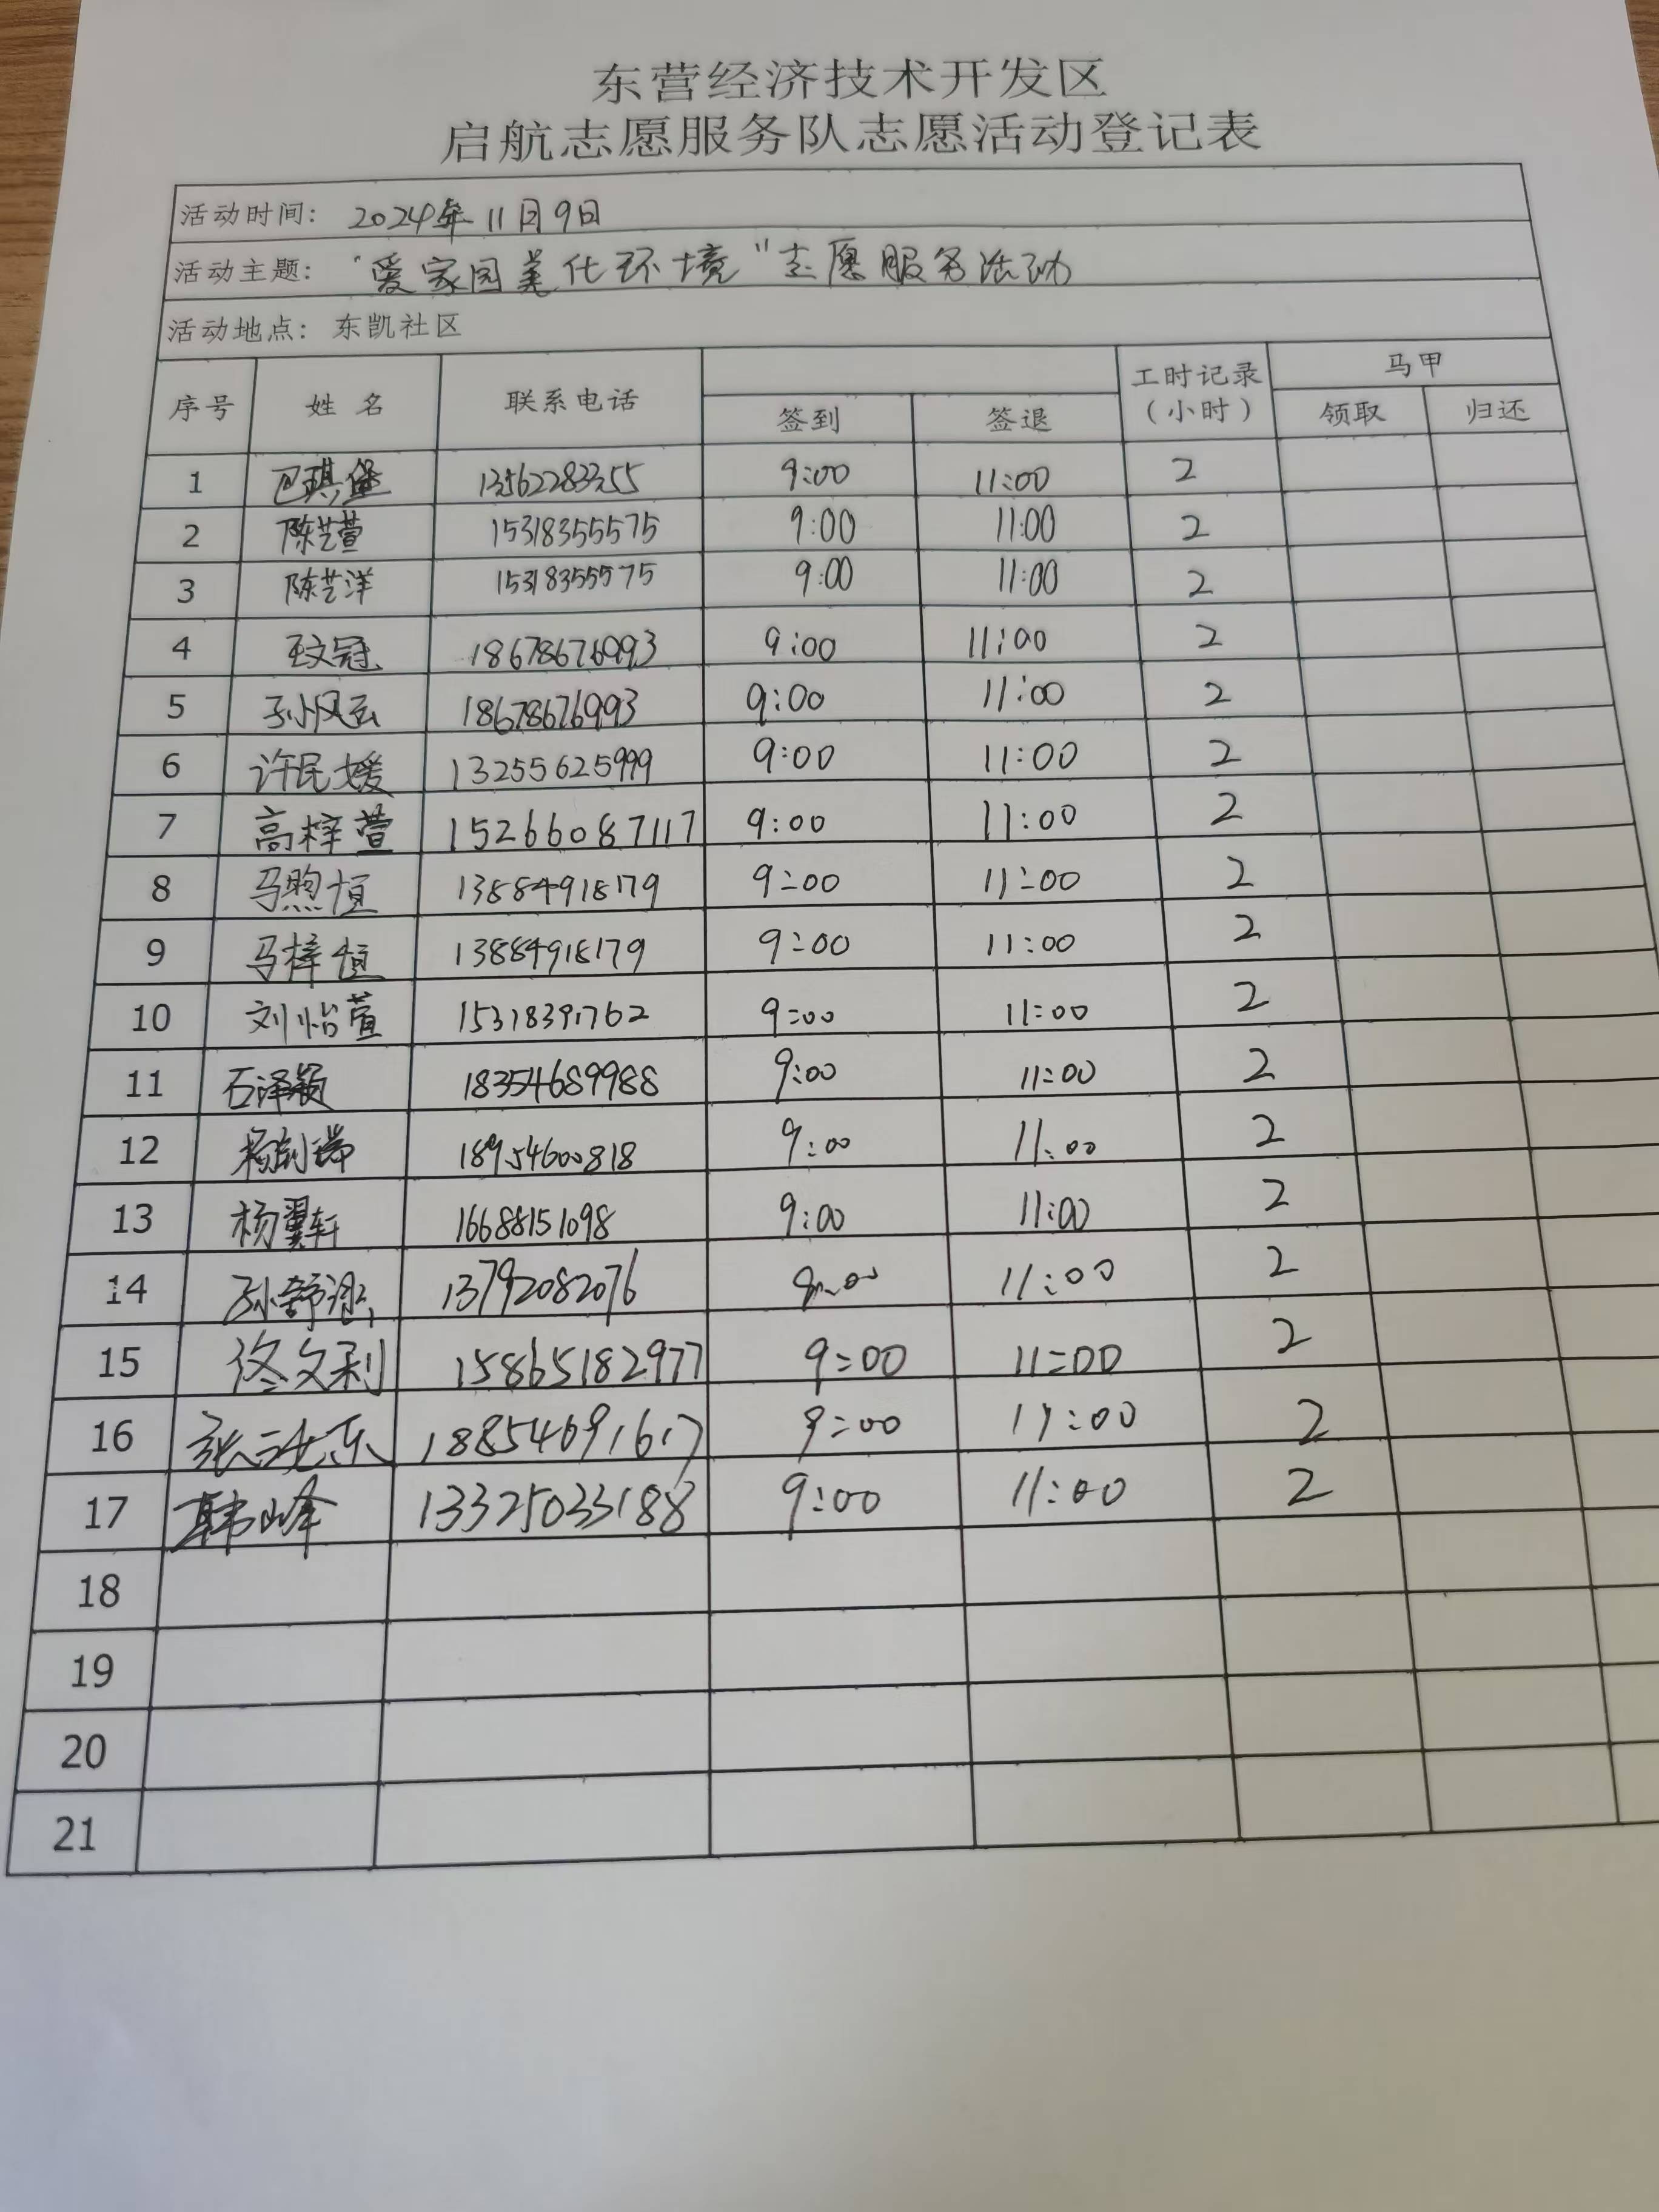 东营经济技术开发区
启航志愿服务队志愿活动登记表
活动时间: 2024年11月9日
活动主题: "爱家园美化环境"志愿服务活动
活动地点: 东凯社区
序号 姓名 联系电话 签到 签退 工时记录(小时) 马甲 领取 归还
1 巴琪 13562283355 9:00 11:00 2
2 陈艺萱 15318355575 9:00 11:00 2
3 陈艺洋 15318355575 9:00 11:00 2
4 王文冠 18678676993 9:00 11:00 2
5 孙风云 18678676993 9:00 11:00 2
6 许民媛 13255625999 9:00 11:00 2
7 高梓萱 15266087117 9:00 11:00 2
8 马煦恒 13884918179 9:00 11:00 2
9 马梓恒 13884918179 9:00 11:00 2
10 刘怡萱 15318391762 9:00 11:00 2
11 石泽颖 18354689988 9:00 11:00 2
12 杨 18954600818 9:00 11:00 2
13 杨翼轩 16688151098 9:00 11:00 2
14 孙舒 13792082076 9:00 11:00 2
15 佟文利 15865182977 9:00 11:00 2
16 张 东 18854691617 9:00 11:00 2
17 韩峰 13325033188 9:00 11:00 2
18
19
20
21